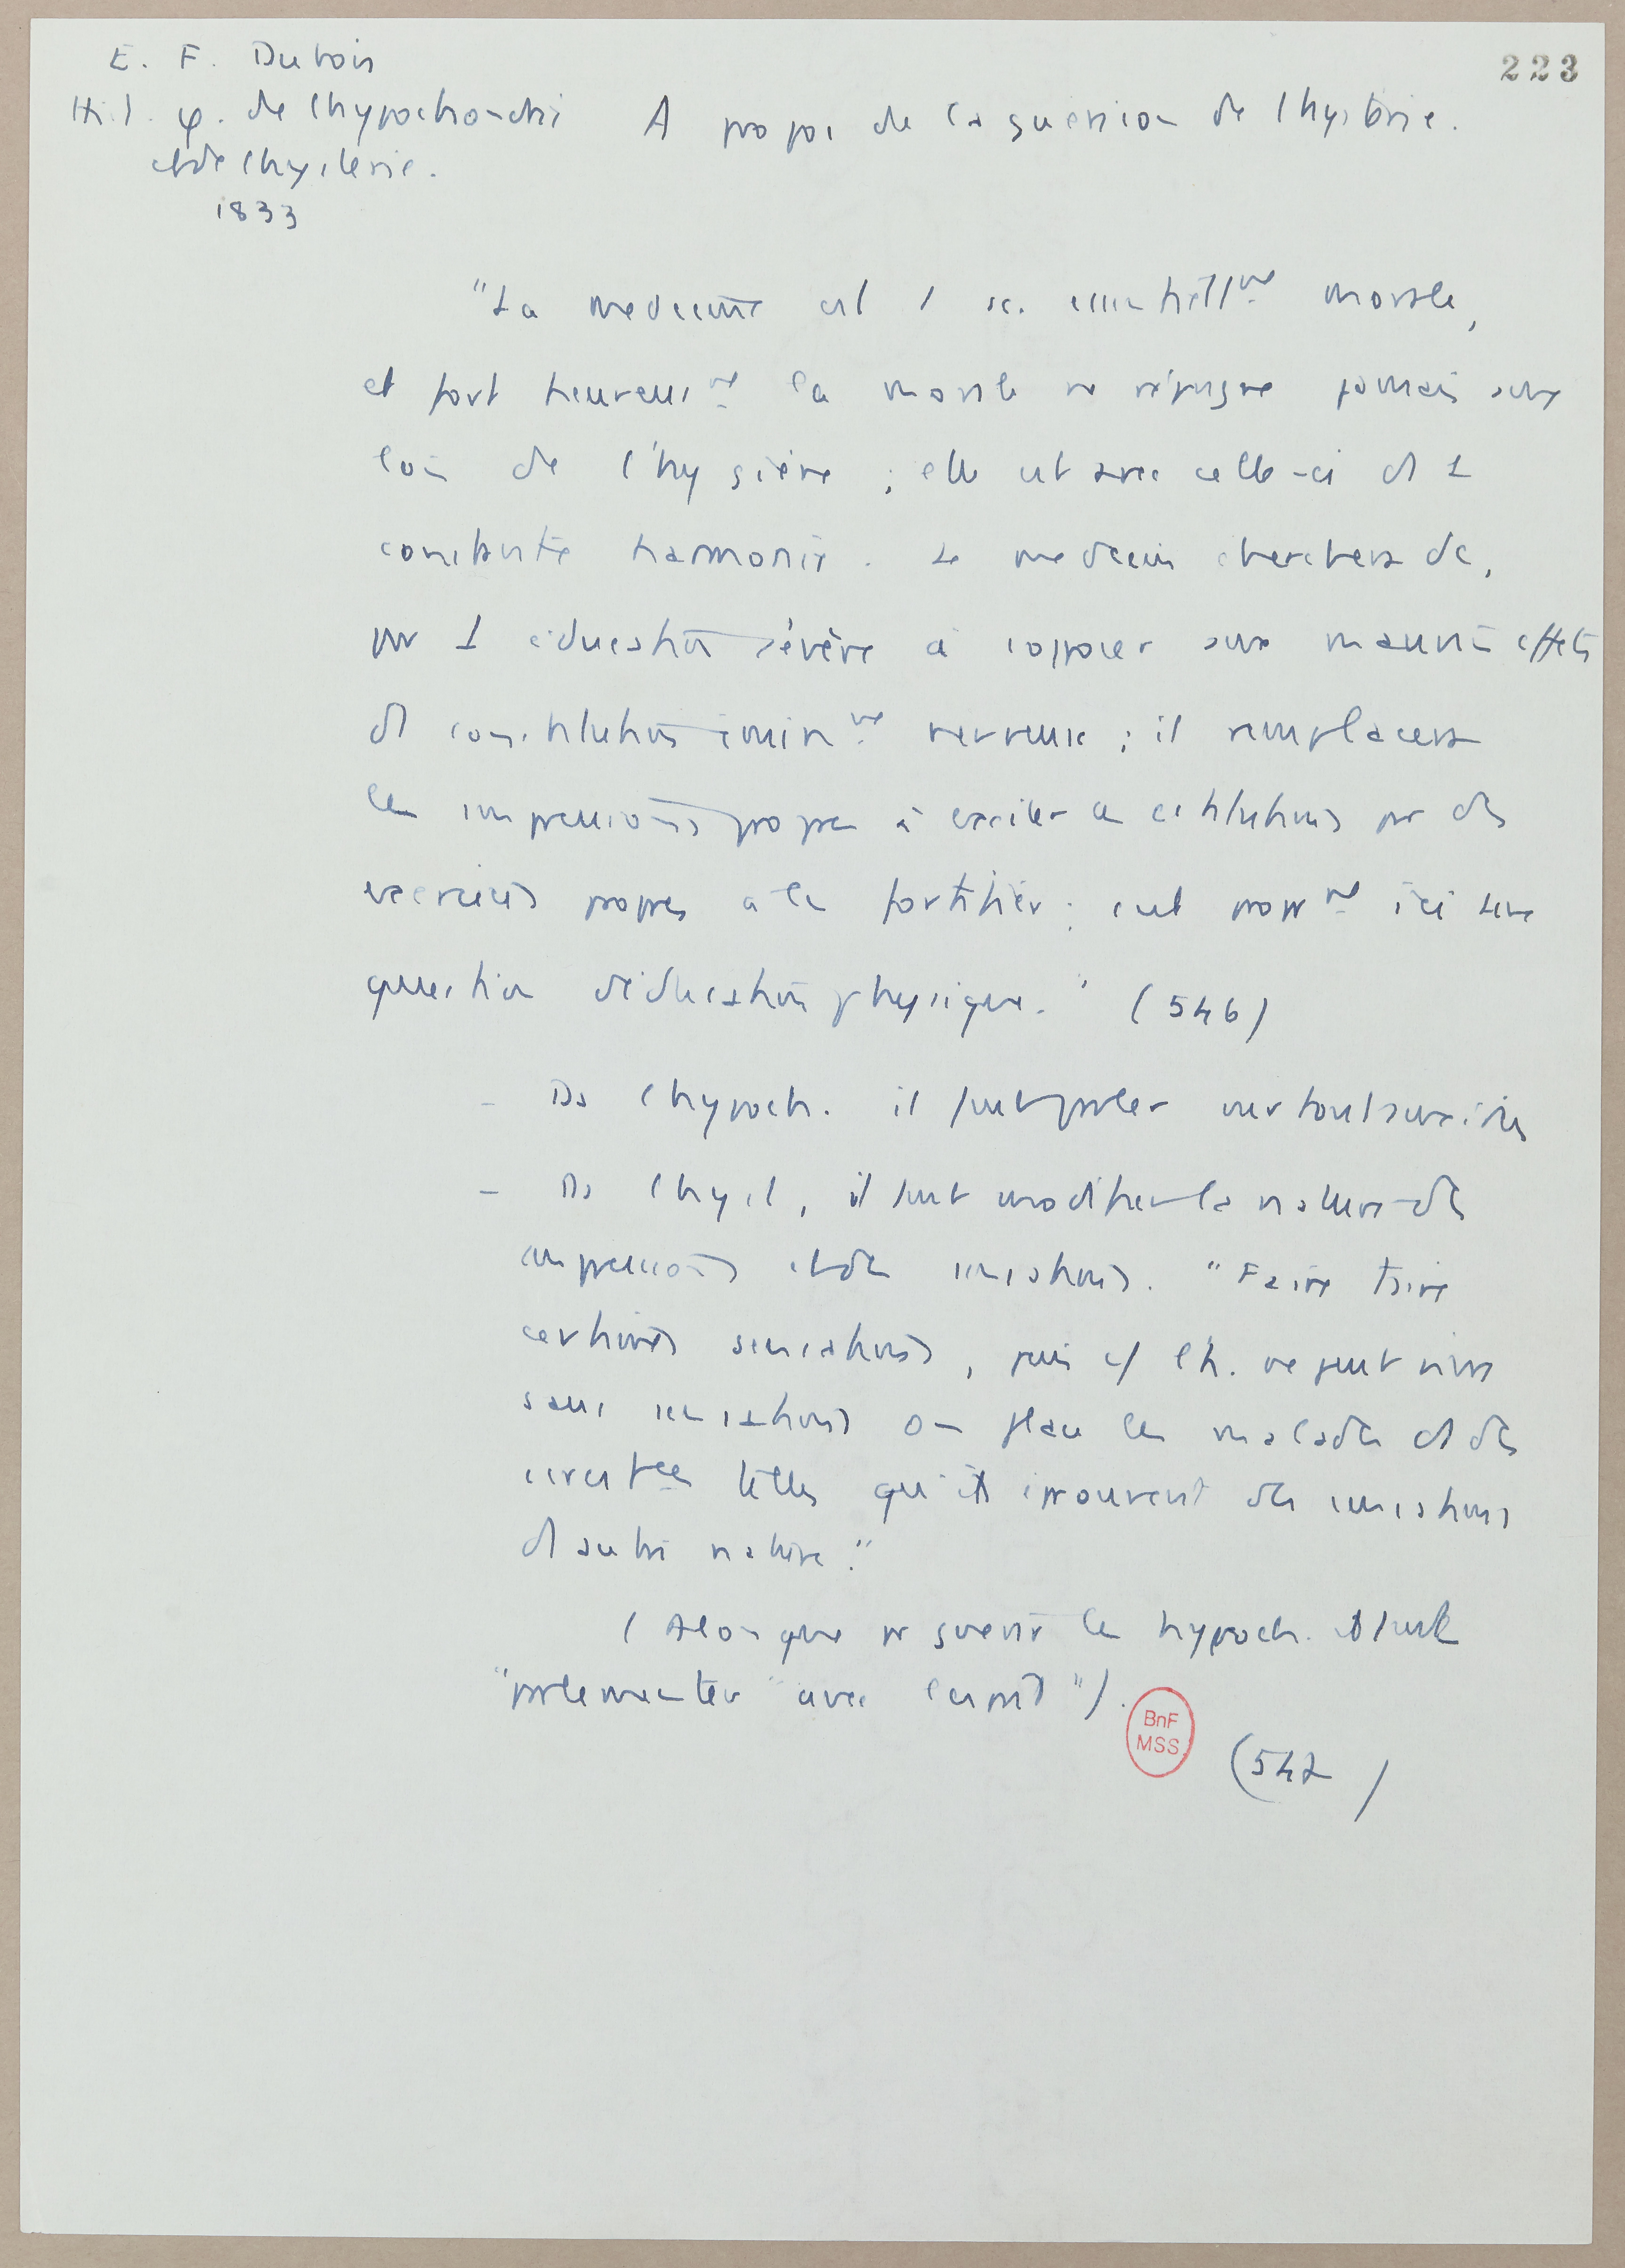 E. F. Dubois
223
Hist. φ. de l'hypochondrie
A propos de la guérison de l'hystérie.
et de l'hystérie.
1833
"La médecine est 1 sc. essentiellmt morale,
et fort heureusmt la morale ne répugne jamais aux
lois de l'hygiène ; elle est avec celle-ci ds 1
constante harmonie. Le médecin cherchera dc,
par 1 éducation sévère à s'opposer aux mauvais effets
des constitutions éminmt nerveuses ; il remplacera
les impressions propres à exciter ces constitutions par des
exercices propres à les fortifier ; c'est propmt ici une
question d'éducation physique." (546)
- Ds l'hypoch. il faut parler surtout aux idées
- Ds l'hyst, il faut modifier la nature des
impressions et des sensations. "Faire taire
certaines sensations, puis c/ l'h. ne peut vivre
sans sensations on place les malades ds des
circstces telles qu'ils éprouvent des sensations
d'autre nature."
(Alors que pr guérir les hypoch. il faut
"parlementer avec l'esprit").
BnF
MSS
(547)